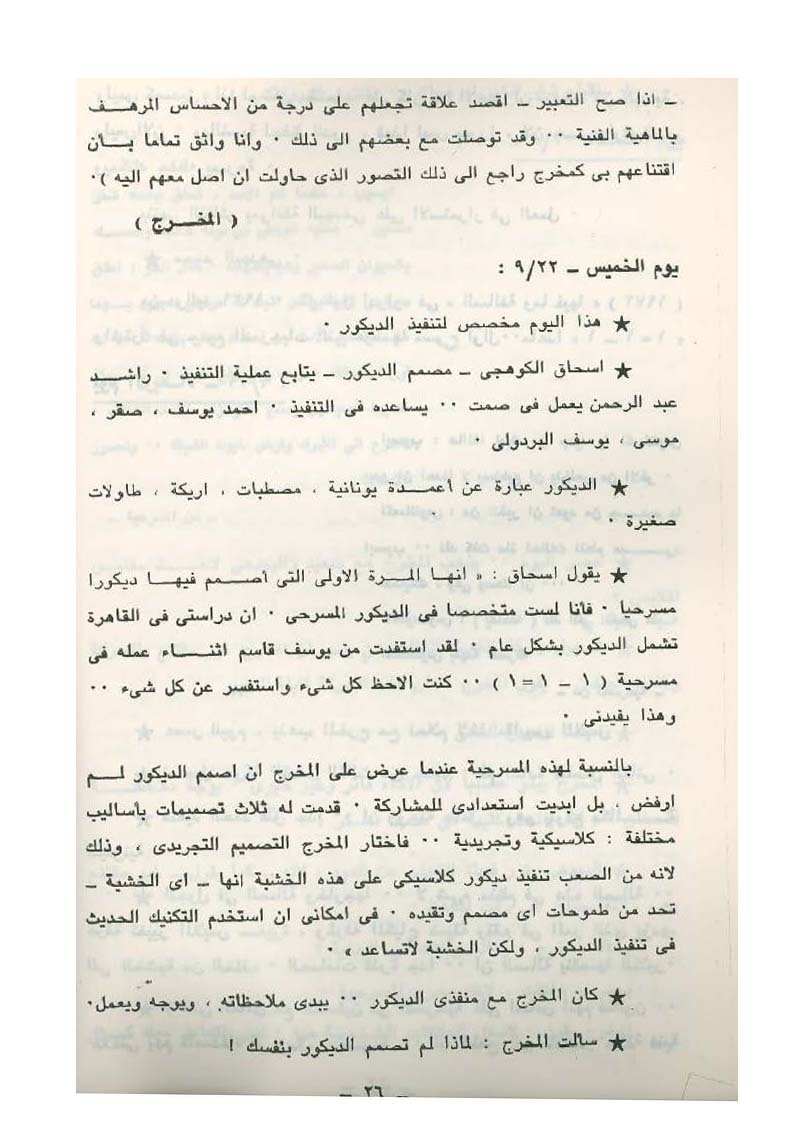 ـ اذا صح التعبير ـ اقصد علاقة تجعلهم على درجة من الاحساس المرهف
بالماهية الفنية ٠٠ وقد توصلت مع بعضهم الى ذلك ٠ وانا واثق تماما بأن
اقتناعهم بى كمخرج راجع الى ذلك التصور الذى حاولت ان اصل معهم اليه )٠
( المخرج )
يوم الخميس ـ ٩/٢٢ :
★ هذا اليوم مخصص لتنفيذ الديكور ٠
★ اسحاق الكوهجى ـ مصمم الديكور ـ يتابع عملية التنفيذ ٠ راشد
عبد الرحمن يعمل فى صمت ٠٠ يساعده فى التنفيذ ٠ احمد يوسف ، صقر ،
موسى ، يوسف البردولى ٠
★ الديكور عبارة عن أعمدة يونانية ، مصطبات ، اريكة ، طاولات
صغيرة ٠
★ يقول اسحاق : « انها المرة الاولى التى أصمم فيها ديكورا
مسرحيا ٠ فأنا لست متخصصا فى الديكور المسرحى ٠ ان دراستى فى القاهرة
تشمل الديكور بشكل عام ٠ لقد استفدت من يوسف قاسم اثناء عمله فى
مسرحية ( ١ ـ ١ = ١ ) ٠٠ كنت الاحظ كل شىء واستفسر عن كل شىء ٠٠
وهذا يفيدنى ٠
بالنسبة لهذه المسرحية عندما عرض على المخرج ان اصمم الديكور لم
ارفض ، بل ابديت استعدادى للمشاركة ٠ قدمت له ثلاث تصميمات بأساليب
مختلفة : كلاسيكية وتجريدية ٠٠ فاختار المخرج التصميم التجريدى ، وذلك
لانه من الصعب تنفيذ ديكور كلاسيكى على هذه الخشبة انها ـ اى الخشبة ـ
تحد من طموحات أى مصمم وتقيده ٠ فى امكانى ان استخدم التكنيك الحديث
فى تنفيذ الديكور ، ولكن الخشبة لاتساعد » ٠
★ كان المخرج مع منفذى الديكور ٠٠ يبدى ملاحظاته ، ويوجه ويعمل٠
★ سألت المخرج : لماذا لم تصمم الديكور بنفسك !
ـ ٢٦ ـ